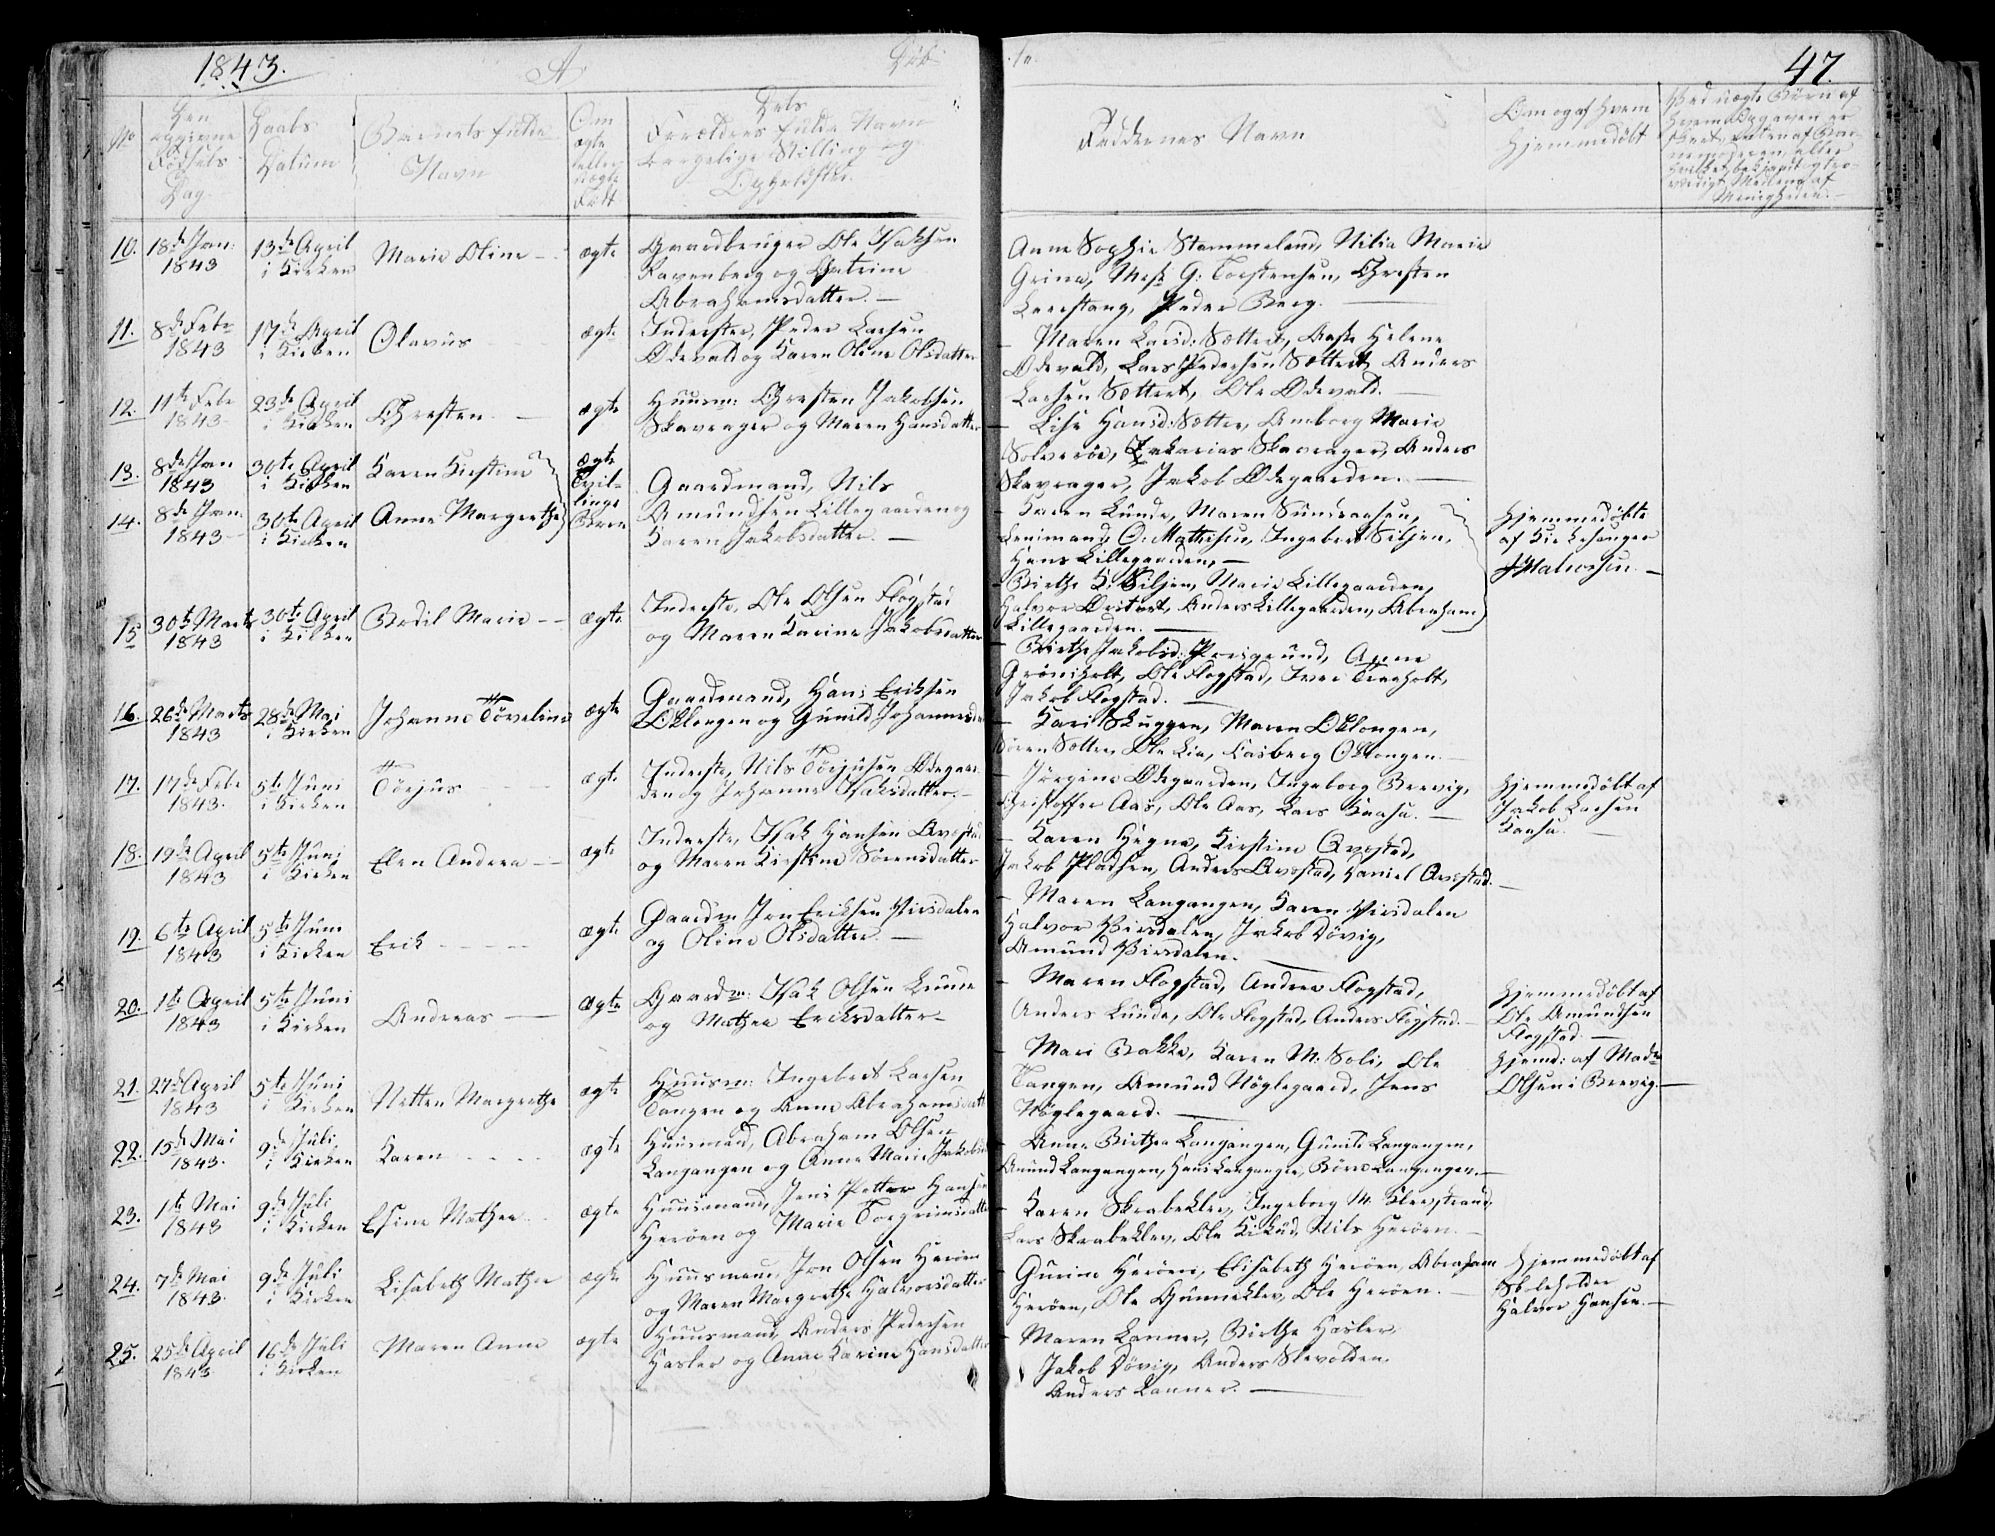 1843.
A
Døb-
te.
47.
No
Den opgivne Fødsels Dag
Daabs Datum
Barnets fulde Navn
Om ægte eller uægte Født
Dets Forældres fulde Navn borgelige Stilling og Opholdsted.
Faddernes Navn
Om og af hvem hjemmedøbt
10. 18de Jan: 1843
13de April i Kirken
Marie Oline
ægte
Gaardbruger Ole Isaksen
Ravenberg og Catrine
Abrahamsdatter.
Anne Sophie Stammeland, Nilia Marie
Grina, Mess G. Torstensen, Chresten
Lerestang, Peder Berg.
11. 8de Febr 1843
17de April i Kirken
Olavus
ægte
Inderster, Peder Larsen
Ødevald og Karen Oline Olsdatter
Maren Larsd: Sættret, Aaste Helene
Ødevald, Lars Pedersen Sættret, Anders
Larsen Sættret, Ole Ødevald.
12. 11te Febr 1843
23de April i Kirken
Chresten
ægte
Huusm: Chresten Jakobsen
Skavrager og Maren Hansdatter
Lise Hansd: Sætter, Amborg Marie
Solverød, Zakarias Skavrager, Anders
Skavrager, Jakob Ødegaarden.
13. 8de Jan 1843
30te April i Kirken
Karen Kirstine
ægte Tvillinge Børn
14. 8de Jan. 1843
30te April i Kirken
Anne Margrethe
Gaardmand, Nils
Amundsen Lillegaarden og
Karen Jakobsdatter.
Karen Lunde, Maren Gundersen,
O. Mathisen, Ingebret Siljen,
Hans Lillegaarden,
Birthe K. Siljen, Marie Lillegaarden,
Halvor Anders Lillegaarden, Abraham
Lillegaarden.
Hjemmedøbte
af Kirkesanger
Mathisen.
15 30te Marts 1843
30te April i Kirken
Bodil Marie
ægte
Inderste, Ole Olsen Flogstad
og Maren Karine Jakobsdatter
Birthe Jakobsd: Porsgrund, Anne
Grønsholt, Ole Flogstad, Iver Traaholt,
Jakob Flogstad.
16. 26de Marts 1843
28de Mai i Kirken
Johanne Toveline
ægte
Gaardmand, Hans Eriksen
Oklongen og Gunild Johannesd
Kari Skuggen, Maren Oklongen,
Søren Sætter Ole Lia, Kasberg Oklongen.
17. 17de Febr 1843.
5te Juni i Kirken
Torjus
ægte
Inderste, Nils Torjusen Ødegaar-
den og Johanne Isaksdatter.
Jørgine Ødegaarden, Ingeborg Brevig,
Christoffer Aas, Ole Aas, Lars Kaasa.
Hjemmedøbt af
Jakob Larsen
Kaasa.
18. 19de April 1843
5te Juni i Kirken
Elen Andrea
ægte
Inderste, Isak Hansen Qvestad
og Maren Kirstine Sørensdatter
Karen Hegna, Kirstine Qvestad,
Jakob Pladsen, Anders Qvestad, Daniel Qvestad.
19. 6te April 1843
5te Juni i Kirken
Erik
ægte
Gaardm Jon Eriksen Versdalen
og Oline Olsdatter.
Maren Langangen, Karen Versdalen
Halvor Versdalen, Jakob Døvig,
Amund Versdalen.
20. 1te April 1843
5te Juni i Kirken
Andreas
ægte
Gaardm: Isak Olsen Lunde
og Mathea Eriksdatter
Maren Flogstad, Andrea Flogstad,
Anders Lunde, Ole Flogstad, Anders Flogstad.
Hjemmedøbt af
Ole Amundsen
Flogstad.
21. 27de April 1843
5te Juni i Kirken
Netten Margrethe
ægte
Huusm: Ingebret Larsen
Tangen og Anne Abrahamsdatt
Mari Bakke, Karen M. Soli, Ole
Tangen, Amund Nøglegaard, Jens
Nøglegaard.
Hjemd: af Madm
Olsen i Brevig.
22. 15de Mai 1843.
9de Juli i Kirken
Karen
ægte
Huusmand, Abraham Olsen
Langangen og Anne Marie Jakobsd
Anne Birthea Langangen, Gunild Langangen,
Amund Langangen, Hans Langangen, Børre Langangen.
23. 1te Mai 1843
9de Juli i Kirken
Elsine Mathea
ægte
Huusmand, Jens Petter Hansen
Herøen og Marie Torgrimsdatter
Karen Skrabeklev, Ingeborg M. Klevstrand,
Lars Skrabeklev, Ole Nils Herøen.
24. 7de Mai 1843.
9de Juli i Kirken
Lisabeth Mathea
ægte
Huusmand, Jon Olsen Herøen
og Maren Margrethe Halvorsdatter
Gurine Herøen, Elisabeth Herøen, Abraham
Herøen, Ole Gunneklev, Ole Herøen.
Hjemmedøbt af
Skoleholder
Halvor Hansen.
25. 25de April 1843
16de Juli i Kirken
Maren Anne
ægte
Huusmand, Anders Pedersen
Hasler og Anne Karine Hansdatter
Maren Lanner, Birthe Hasler,
Jakob Døvig, Anders Skevolden.
Anders Lanner.